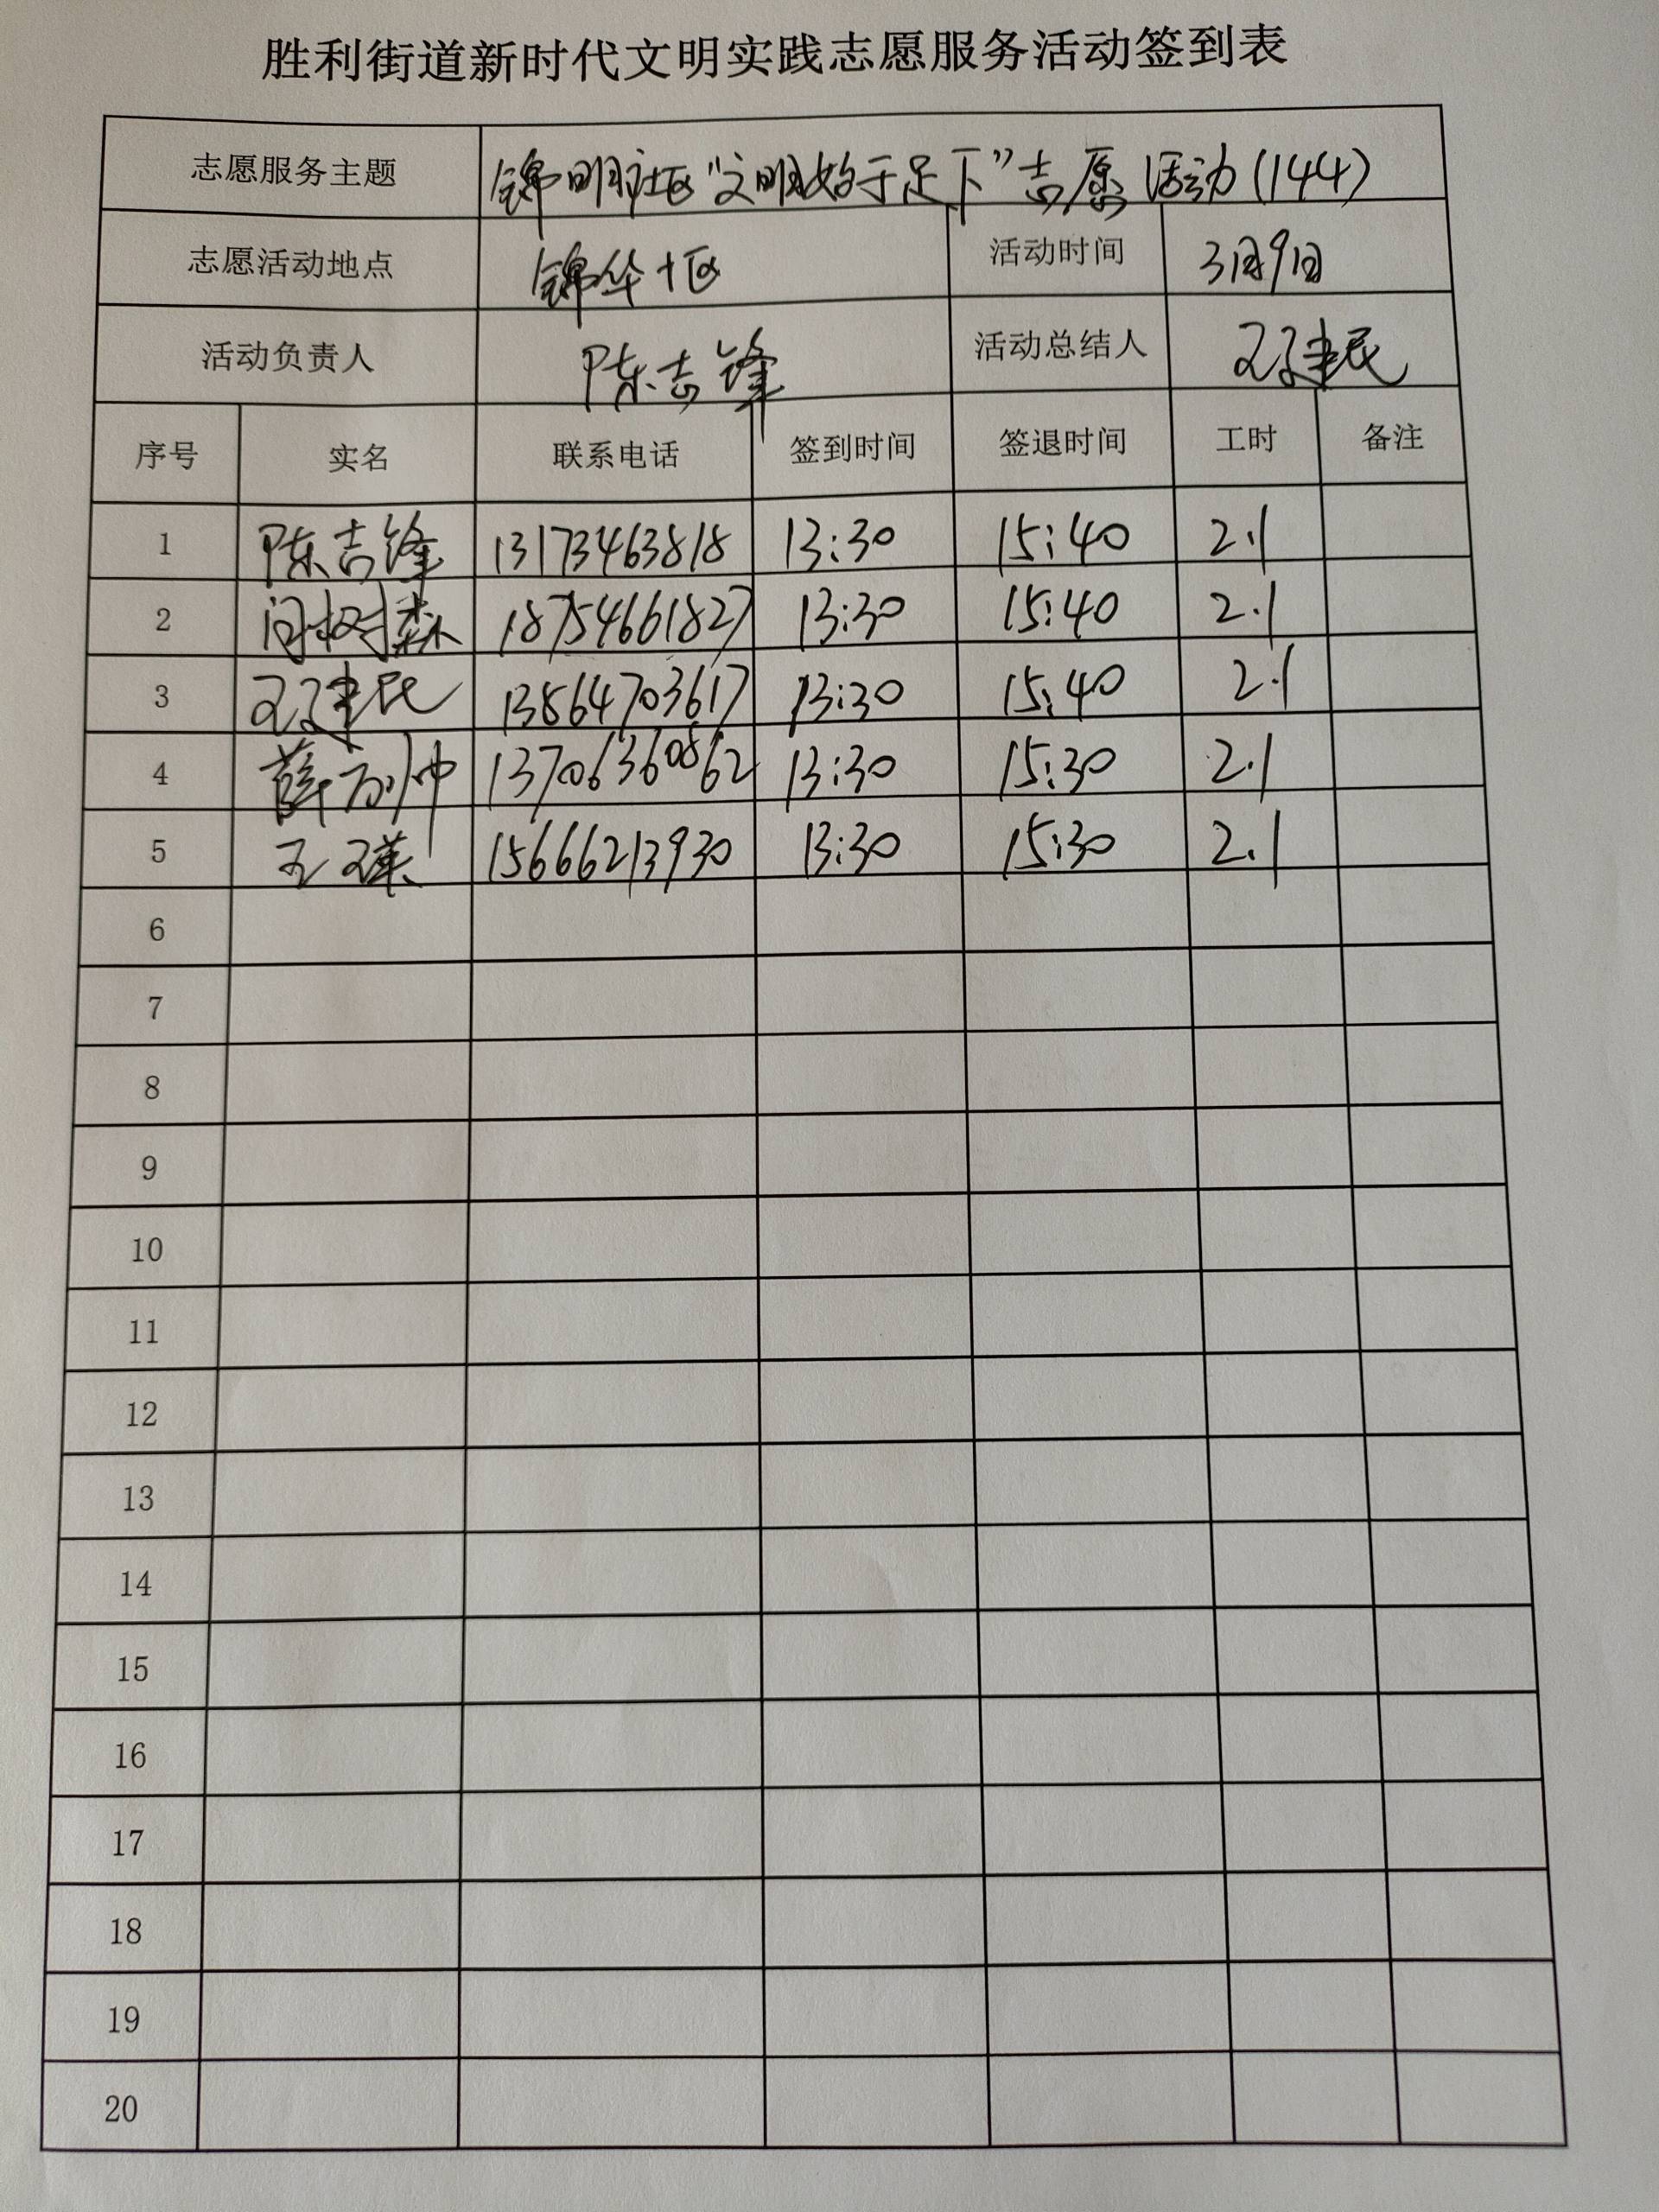 胜利街道新时代文明实践志愿服务活动签到表
志愿服务主题 锦明社区“文明始于足下”志愿活动(144)
志愿活动地点 锦华十区 活动时间 3月9日
活动负责人 陈志锋 活动总结人 建民
序号 实名 联系电话 签到时间 签退时间 工时 备注
1 陈吉锋 13173463818 13:30 15:40 2.1
2 闫树森 18754661827 13:30 15:40 2.1
3 建民 13864703617 13:30 15:40 2.1
4 薛万帅 13706360862 13:30 15:30 2.1
5 王瑛 15666213930 13:30 15:30 2.1
6
7
8
9
10
11
12
13
14
15
16
17
18
19
20